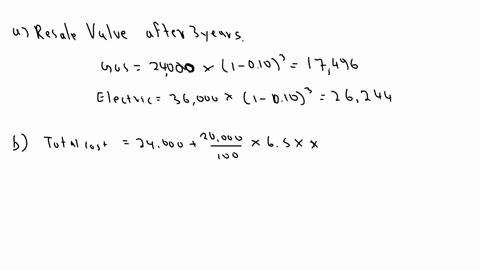 a) Resale Value after 3 years.
Gas = 24,000 × (1-0.10)³ = 17,496
Electric = 36,000 × (1-0.10)³ = 26,244
b) Total cost = 24.000 + 20,000/100 × 6.5 × ×